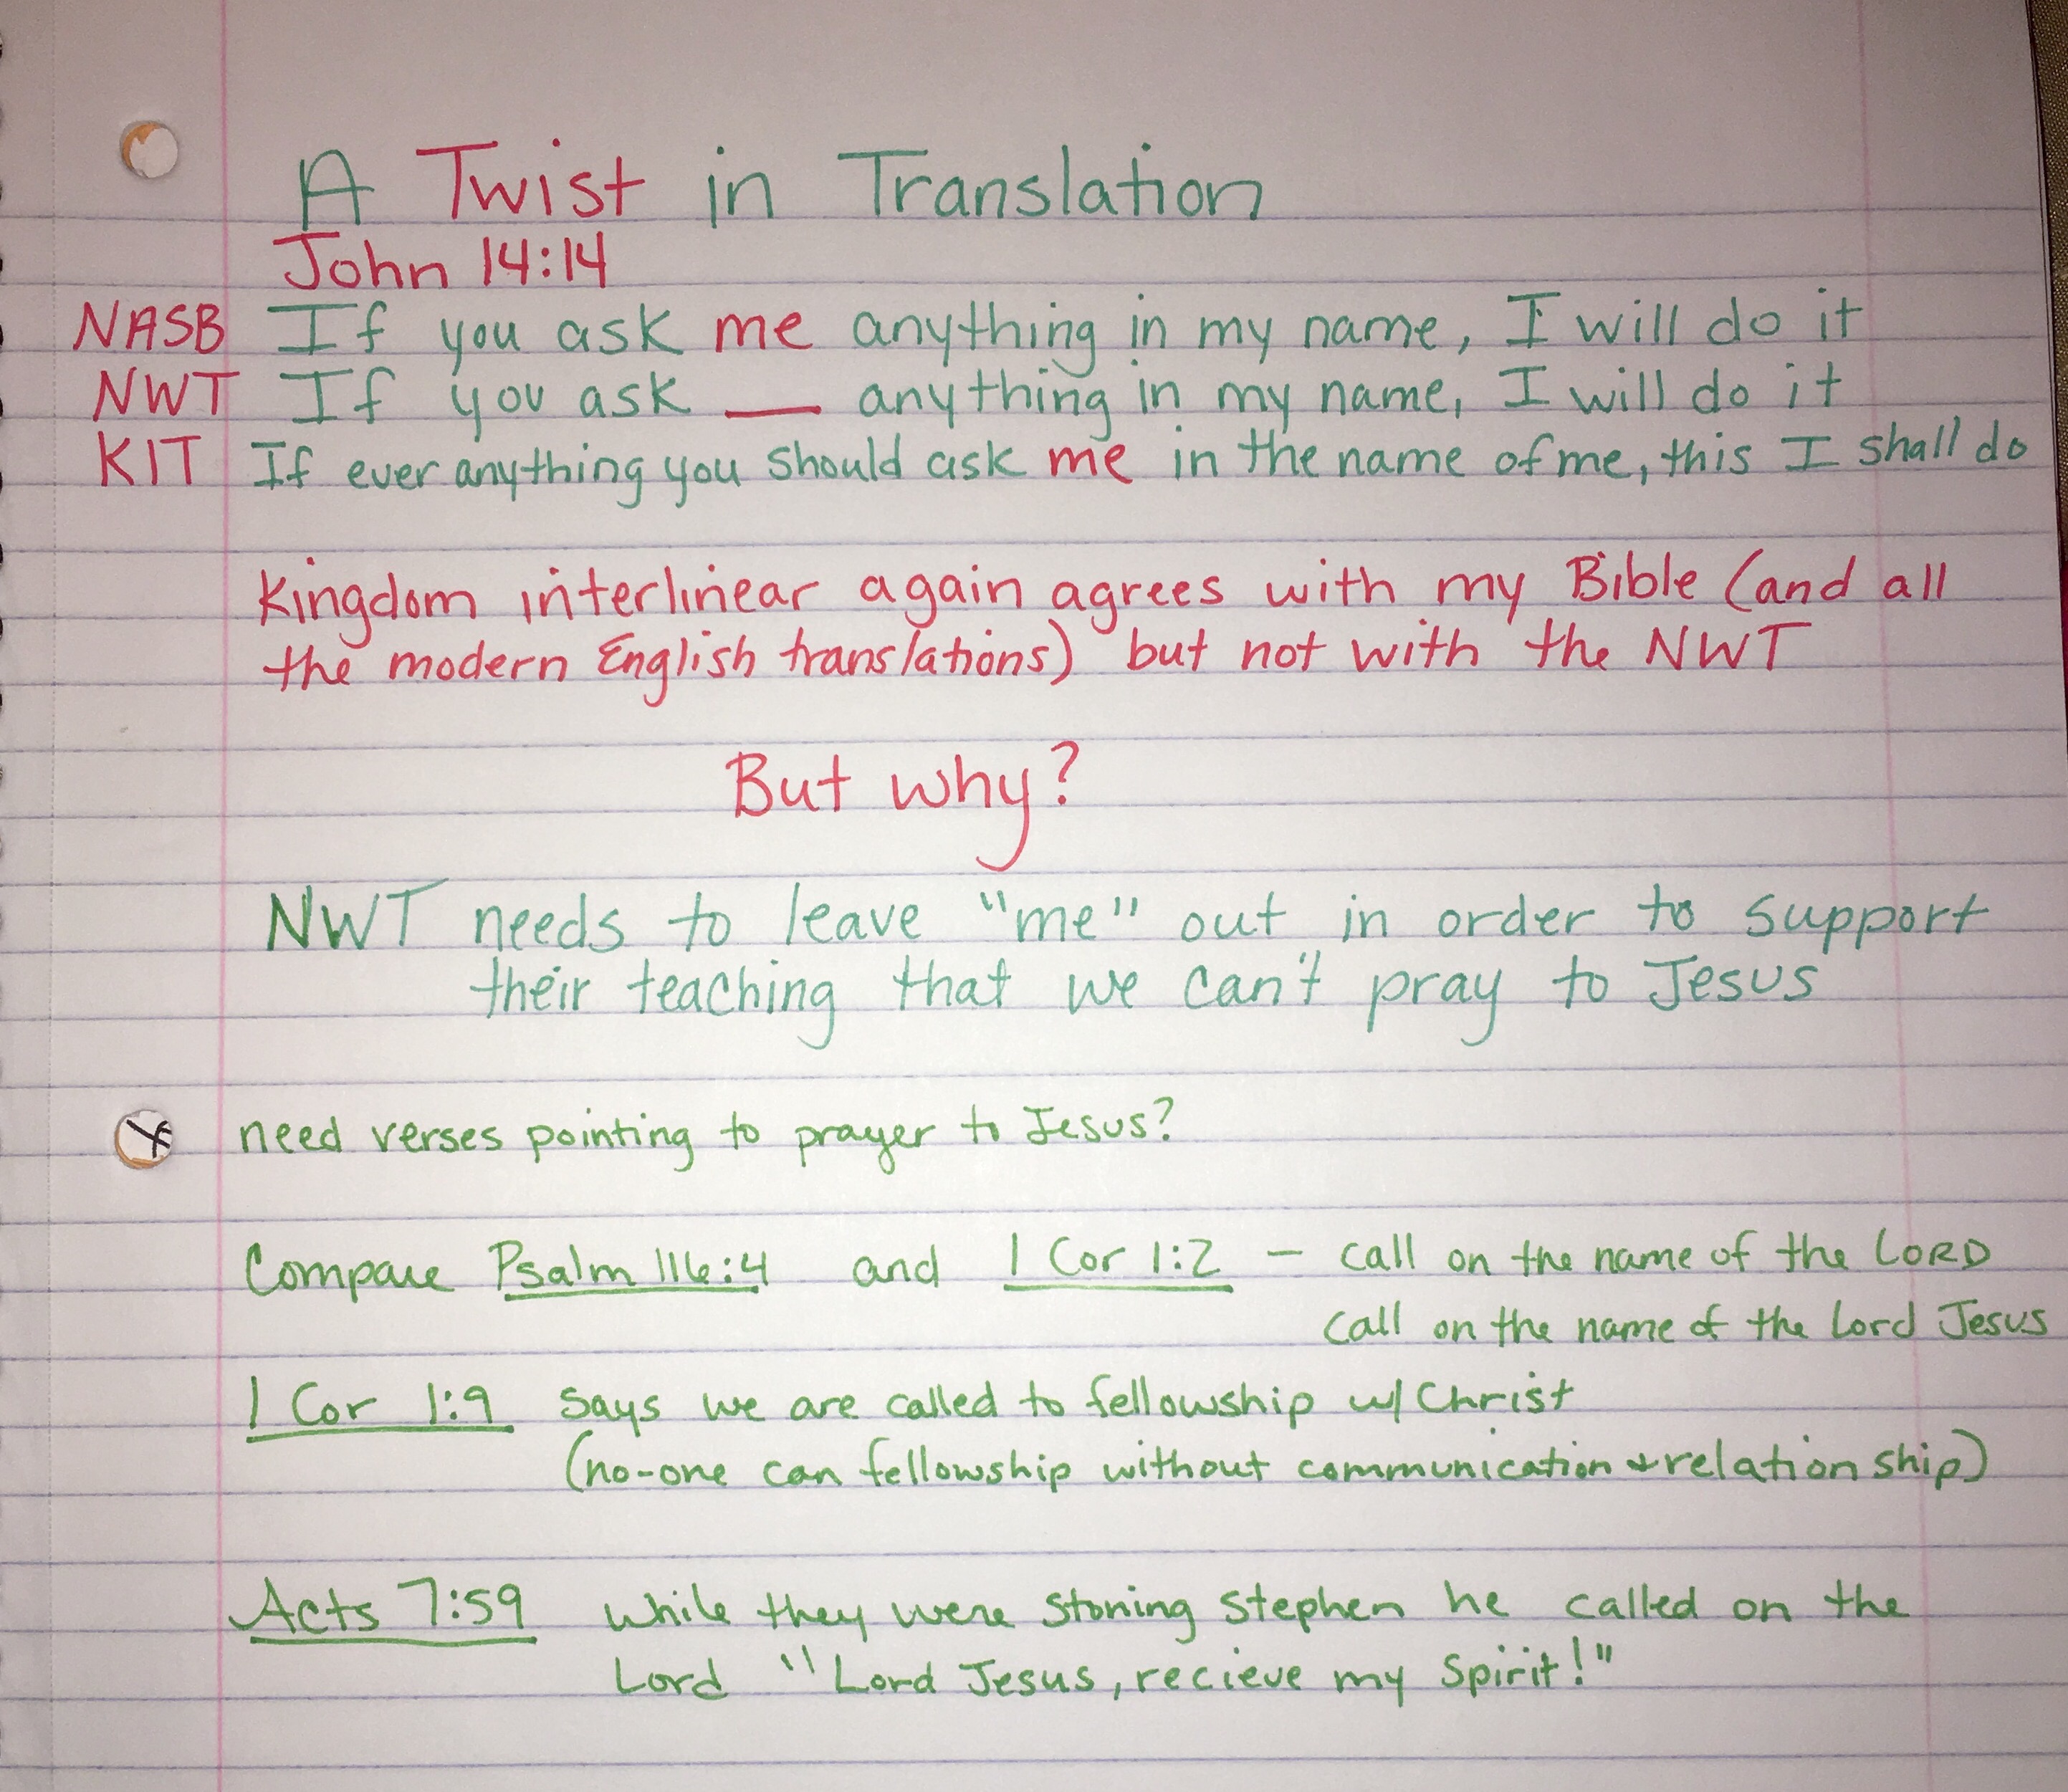 A Twist in Translation
John 14:14
NASB If you ask me anything in my name, I will do it
NWT If you ask ___ anything in my name, I will do it
KIT If ever anything you should ask me in the name of me, this I shall do
Kingdom interlinear again agrees with my Bible (and all
the modern English translations) but not with the NWT
But why?
NWT needs to leave "me" out in order to support
their teaching that we can't pray to Jesus
need verses pointing to prayer to Jesus?
Compare Psalm 116:4 and 1 Cor 1:2 – call on the name of the LORD
call on the name of the Lord Jesus
1 Cor 1:9 says we are called to fellowship w/ Christ
(no-one can fellowship without communication + relationship)
Acts 7:59 while they were stoning Stephen he called on the
Lord "Lord Jesus, recieve my Spirit!"